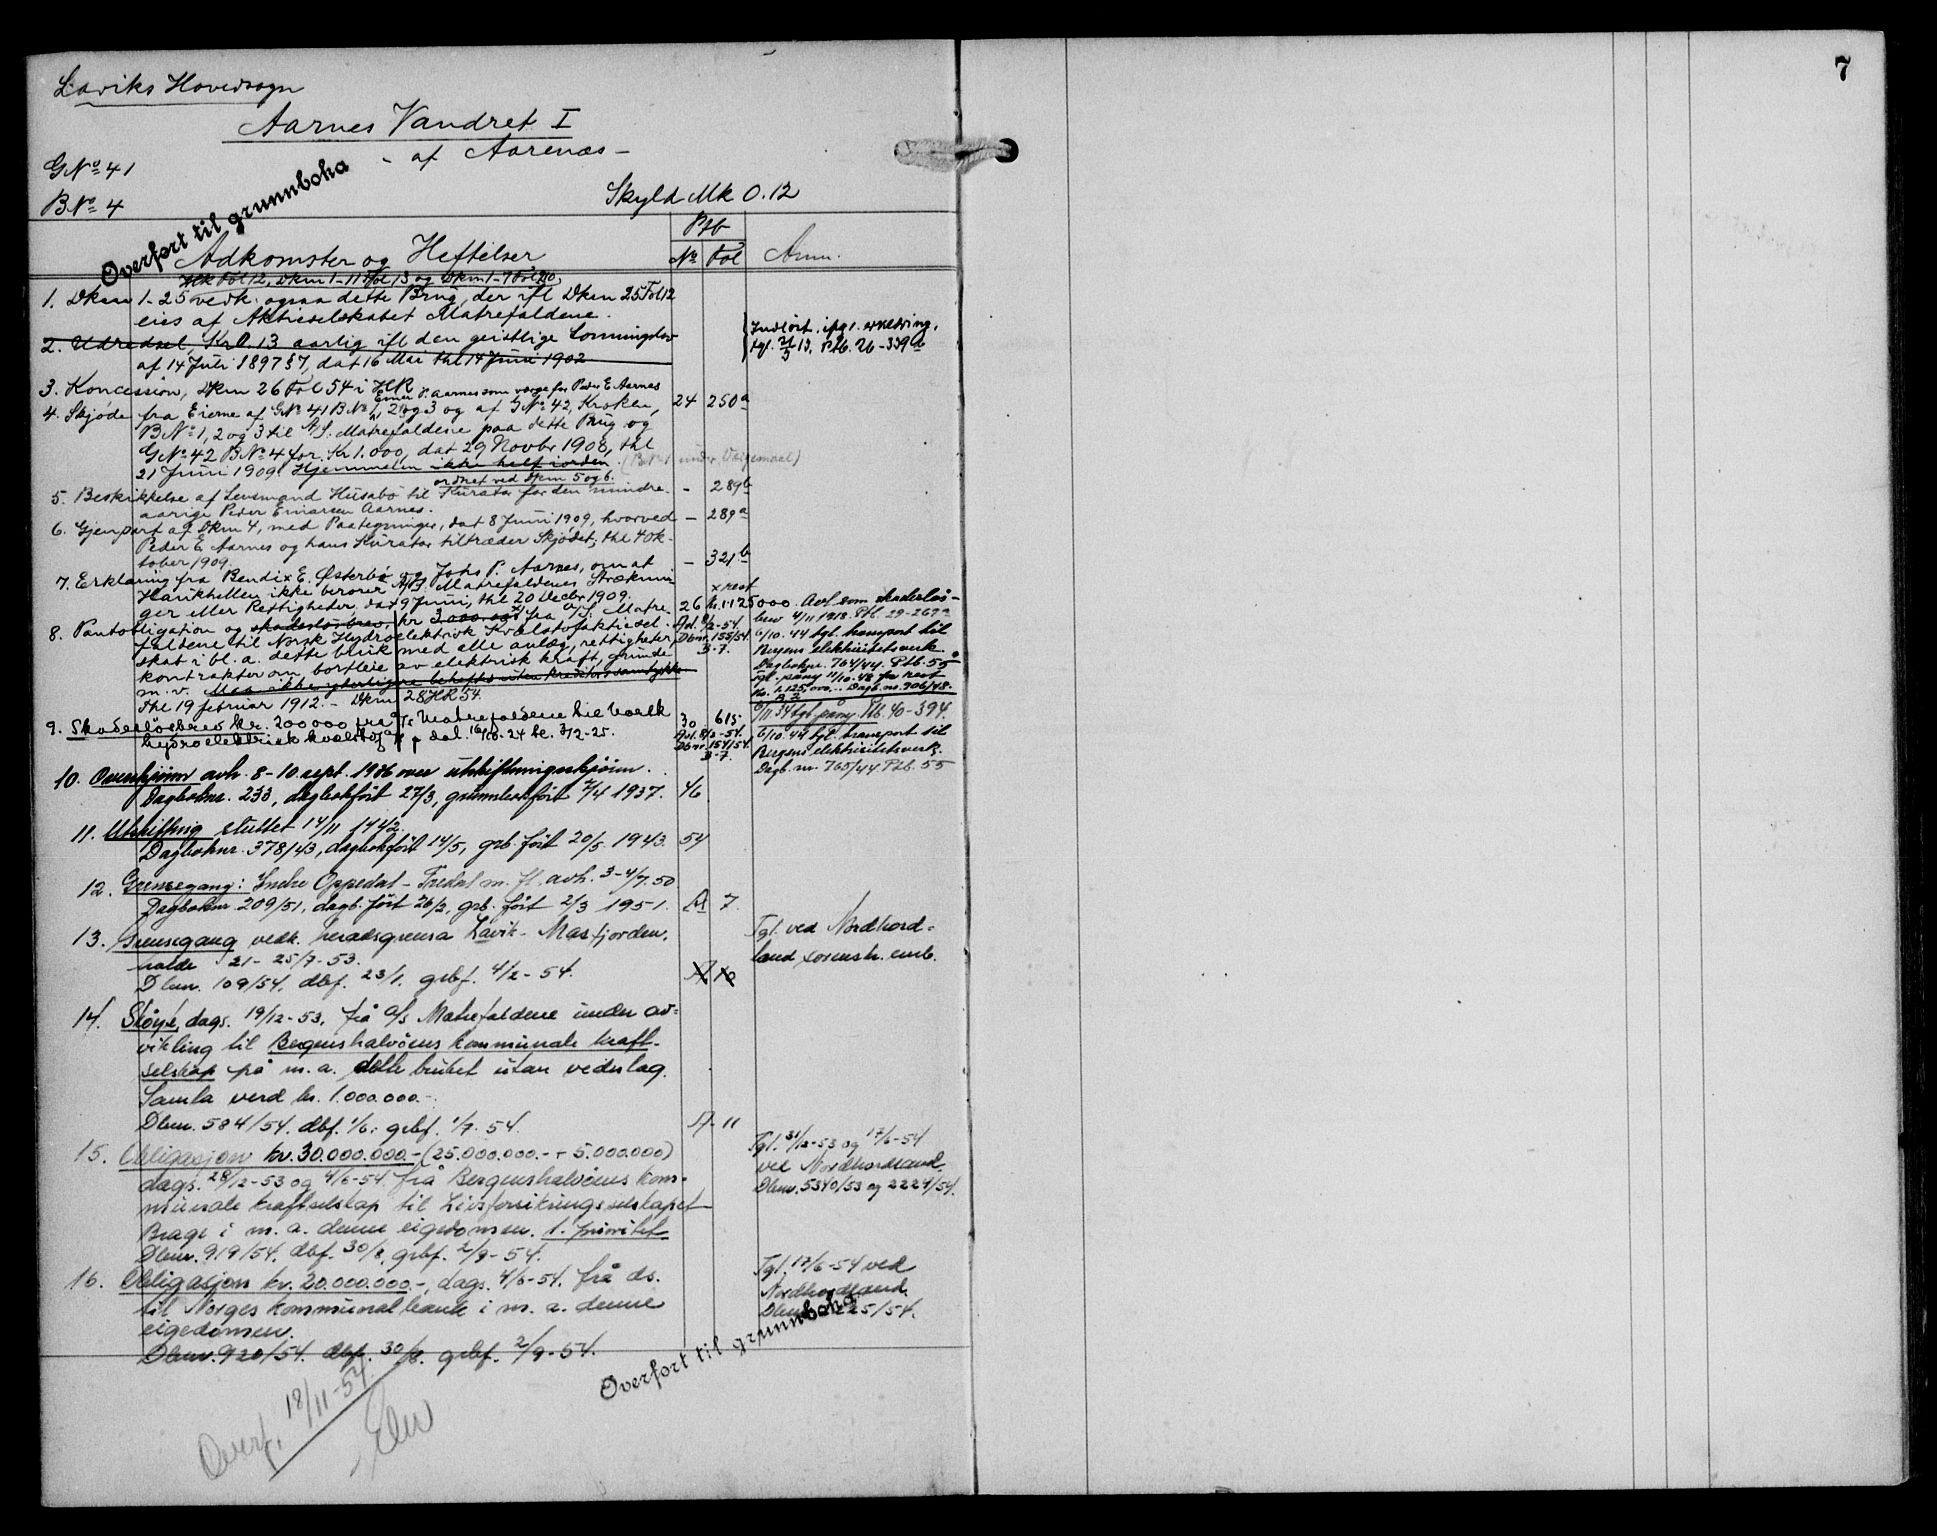 7
Laviks Hovedsogn
Aarnes Vandret I
- af Aarenæs -
GNo 41
BNo 4
Overført til grunnboka
Skyld Mk 0.12
Adkomster og Heftelser
Ptb
No Fol
Anm.
1. Dkm 1-25 vedk. ogsaa dette Brug, der ifl Dkm 25 Fol 12
eies af Aktieselskabet Matrefaldene.
2. Udredsel, Kr 0.13 aarlig ifl den geistlige Lønningslov
af 14 Juli 1897 §7, dat 16 Mai thl 14 Juni 1902
Indløst, ifgl. erklæring,
tgl. 21/5 13, Ptb. 26-339b
3. Koncession, Dkm 26 Fol 54 i HR
Einar P. Aarnes som værge for Peder E Aarnes
4. Skjøde fra Eierne af GNo 41 BNo 1, 2 og 3 og af GNo 42, Kroken, 24 250a
BNo 1, 2 og 3 til A/S. Matrefaldene paa dette Brug og
GNo 42 BNo 4 for Kr 1.000, dat 29 Novbr 1908, thl
21 Juni 1909. Hjemmelen ikke helt iorden. (BNo 1 under Værgemaal)
ordnet ved Dkm 5 og 6.
5. Beskikkelse af Lensmand Husabø til Kurator for den mindre - 289b
aarige Peder Einarsen Aarnes.
6. Gjenpart af Dkm 4, med Paategninger, dat 8 Juni 1909, hvorved - 289a
Peder E. Aarnes og hans Kurator tiltræder Skjødet; thl 4 Ok-
tober 1909. - 321b
7. Erklæring fra Bendix E. Østerbø og Johs P. Aarnes, om at
Haukhellen ikke berører A/S Matrefaldenes Stræknin-
ger eller Rettigheder, dat 9 Juni, thl 20 Decbr 1909.
8. Pantobligation og skadesløsbrev, kr 3.000.000 fra A/S. Matre- 26
faldene til Norsk Hydroelektrisk Kvælstofaktiesel-
skab i bl. a. dette bruk med alle anlæg, rettigheter,
kontrakter om bortleie av elektrisk kraft, grunde
m. v. Maa ikke yderligere beheftes uten kreditors samtykke.
Thl 19 februar 1912. - Dkm 28 HR 54.
x rest
kr. 1.125000. Avl. som skadesløs-
brev 4/11 1918. Ptb. 29-269a
6/10. 44 tgl. transport til
Bergens elektrisitetsverk
Dagboknr. 764/44. Ptb. 55
Tgl. påny 11/10. 48 for rest
kr. 1.125.000.- Dagb. nr. 906/48.
Avl. 8/2-54.
Dbnr. 155/54.
B-7.
9. Skadesløsbrev kr. 200000 fra A/S Matrefaldene til Norsk 30 615
hydroelektrisk kvælstof A/S dat. 16/10-24 tl. 3/2-25.
Avl. 8/2-54.
Dbnr. 154/54.
B-7.
6/11 34 tgl. påny. Ptb. 40-394.
6/10. 44 tgl. transport til
Bergens elektrisitetsverk.
Dagb. nr. 765/44. Ptb. 55
10. Overskjønn avh. 8-10. sept. 1936 over utskiftningsskjønn.
Dagboknr. 233, dagbokført 27/3, grunnbokført 2/4 1937. 46
11. Utskiftning sluttet 14/11 1942.
Dagboknr. 378/43, dagbokført 14/5, grb. ført 20/5 1943. 54
12. Grensegang: Indre Oppedal - Tredal m. fl. avh. 3-4/7. 50
Dagboknr. 209/51, dagb. ført 26/2, grb. ført 2/3 1951. A 7.
13. Grensegang vedk. heradsgrensa Lavik - Masfjorden,
halde 21-25/7-53.
Dbnr. 109/54. dbf. 23/1. grbf. 4/2-54.
Tgl. ved Nordhord-
land sorenskr. emb.
14. Skøyte, dags. 19/12-53, frå A/S Matrefaldene under av-
vikling til Bergenshalvöens kommunale kraft-
selskap på m. a. dette bruket utan vederlag.
Samla verd kr. 1.000.000.-
Dbnr. 584/54. dbf. 1/6. grbf. 1/7. 54. A 11
15. Obligasjon kr. 30.000.000.- (25.000.000.- + 5.000.000)
dags. 28/12-53 og 4/6-54 frå Bergenshalvöens kom-
munale kraftselskap til Livsforsikringsselskapet
Brage i m. a. denne eigedomen. 1. prioritet
Dbnr. 919/54. dbf. 30/8. grbf. 2/9-54.
Tgl. 31/12-53 og 17/6-54
ved Nordhordland.
Dbnr. 5340/53 og 2224/54.
16. Obligasjon kr. 20.000.000.-, dags. 4/6-54. frå ds.
til Norges kommunalbank i m. a. denne
eigedomen.
Dbnr. 920/54. dbf. 30/8. grbf. 2/9-54.
Tgl. 17/6-54 ved
Nordhordland.
Dbnr. 2225/54.
Overført til grunnboka
Overf. 18/11-54